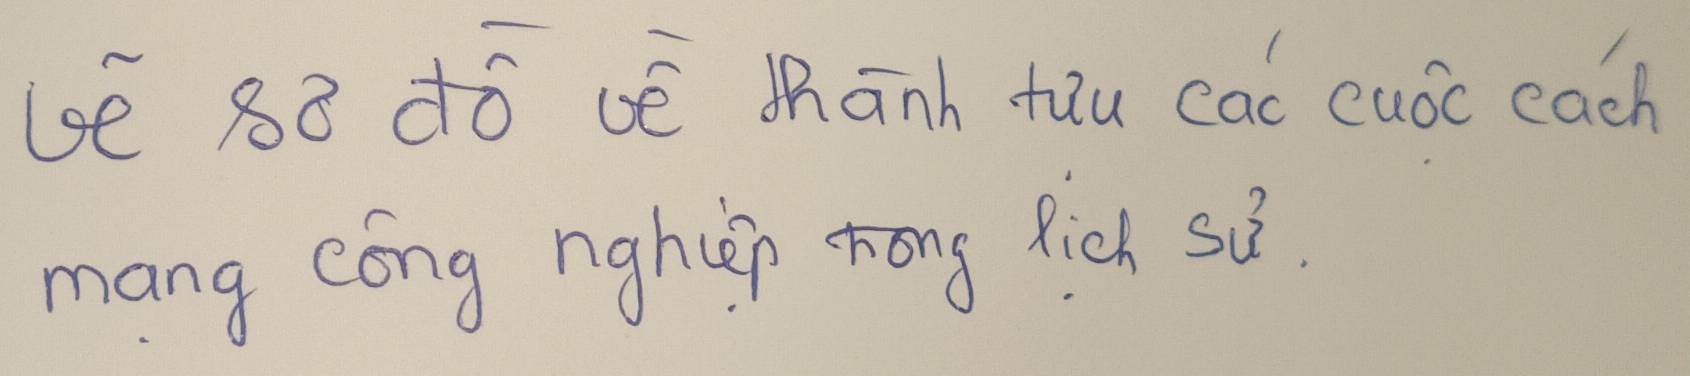 Vẽ sơ đồ về thành tựu các cuộc cách
mạng công nghiệp trong lịch sử.